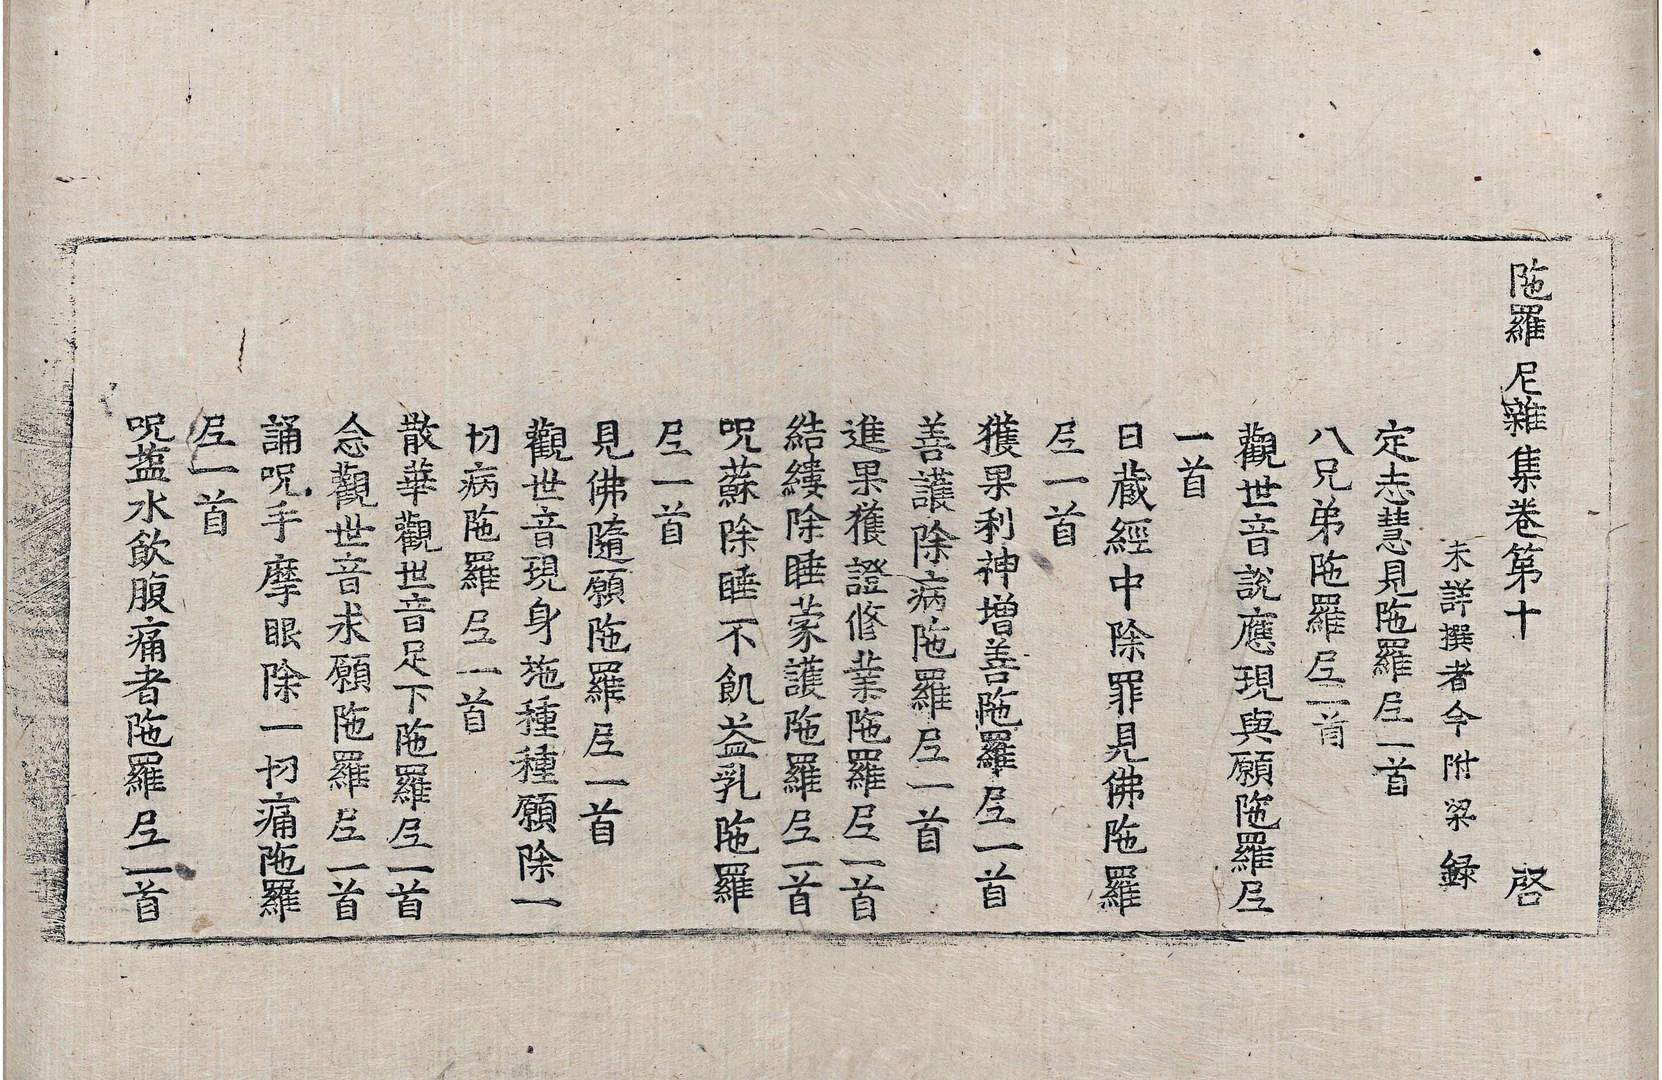 陁羅尼雜集卷第十 啓
未詳撰者今附梁錄
定志慧見陁羅𡰱一首
八兄弟陁羅𡰱一首
觀世音說應現與願陁羅𡰱
一首
日藏經中除罪見佛陁羅
𡰱一首
獲果利神增善陁羅𡰱一首
善護除病陁羅𡰱一首
進果獲證修業陁羅𡰱一首
結縷除睡蒙護陁羅𡰱一首
呪蘇除睡不飢益乳陁羅
𡰱一首
見佛隨願陁羅𡰱一首
觀世音現身施種種願除一
切病陁羅𡰱一首
散華觀世音足下陁羅𡰱一首
念觀世音求願陁羅𡰱一首
誦呪手摩眼除一切痛陁羅
𡰱一首
呪藍水飮腹痛者陁羅𡰱一首